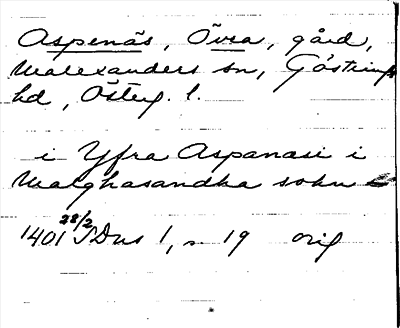 Aspenäs, Övra, gård,
Walexanders sn, Göstrings
hd, Österg. l.
i Yfra Aspanæsi i
Walghasandha sokn
1401 28/2 SDns 1, s 19 orig